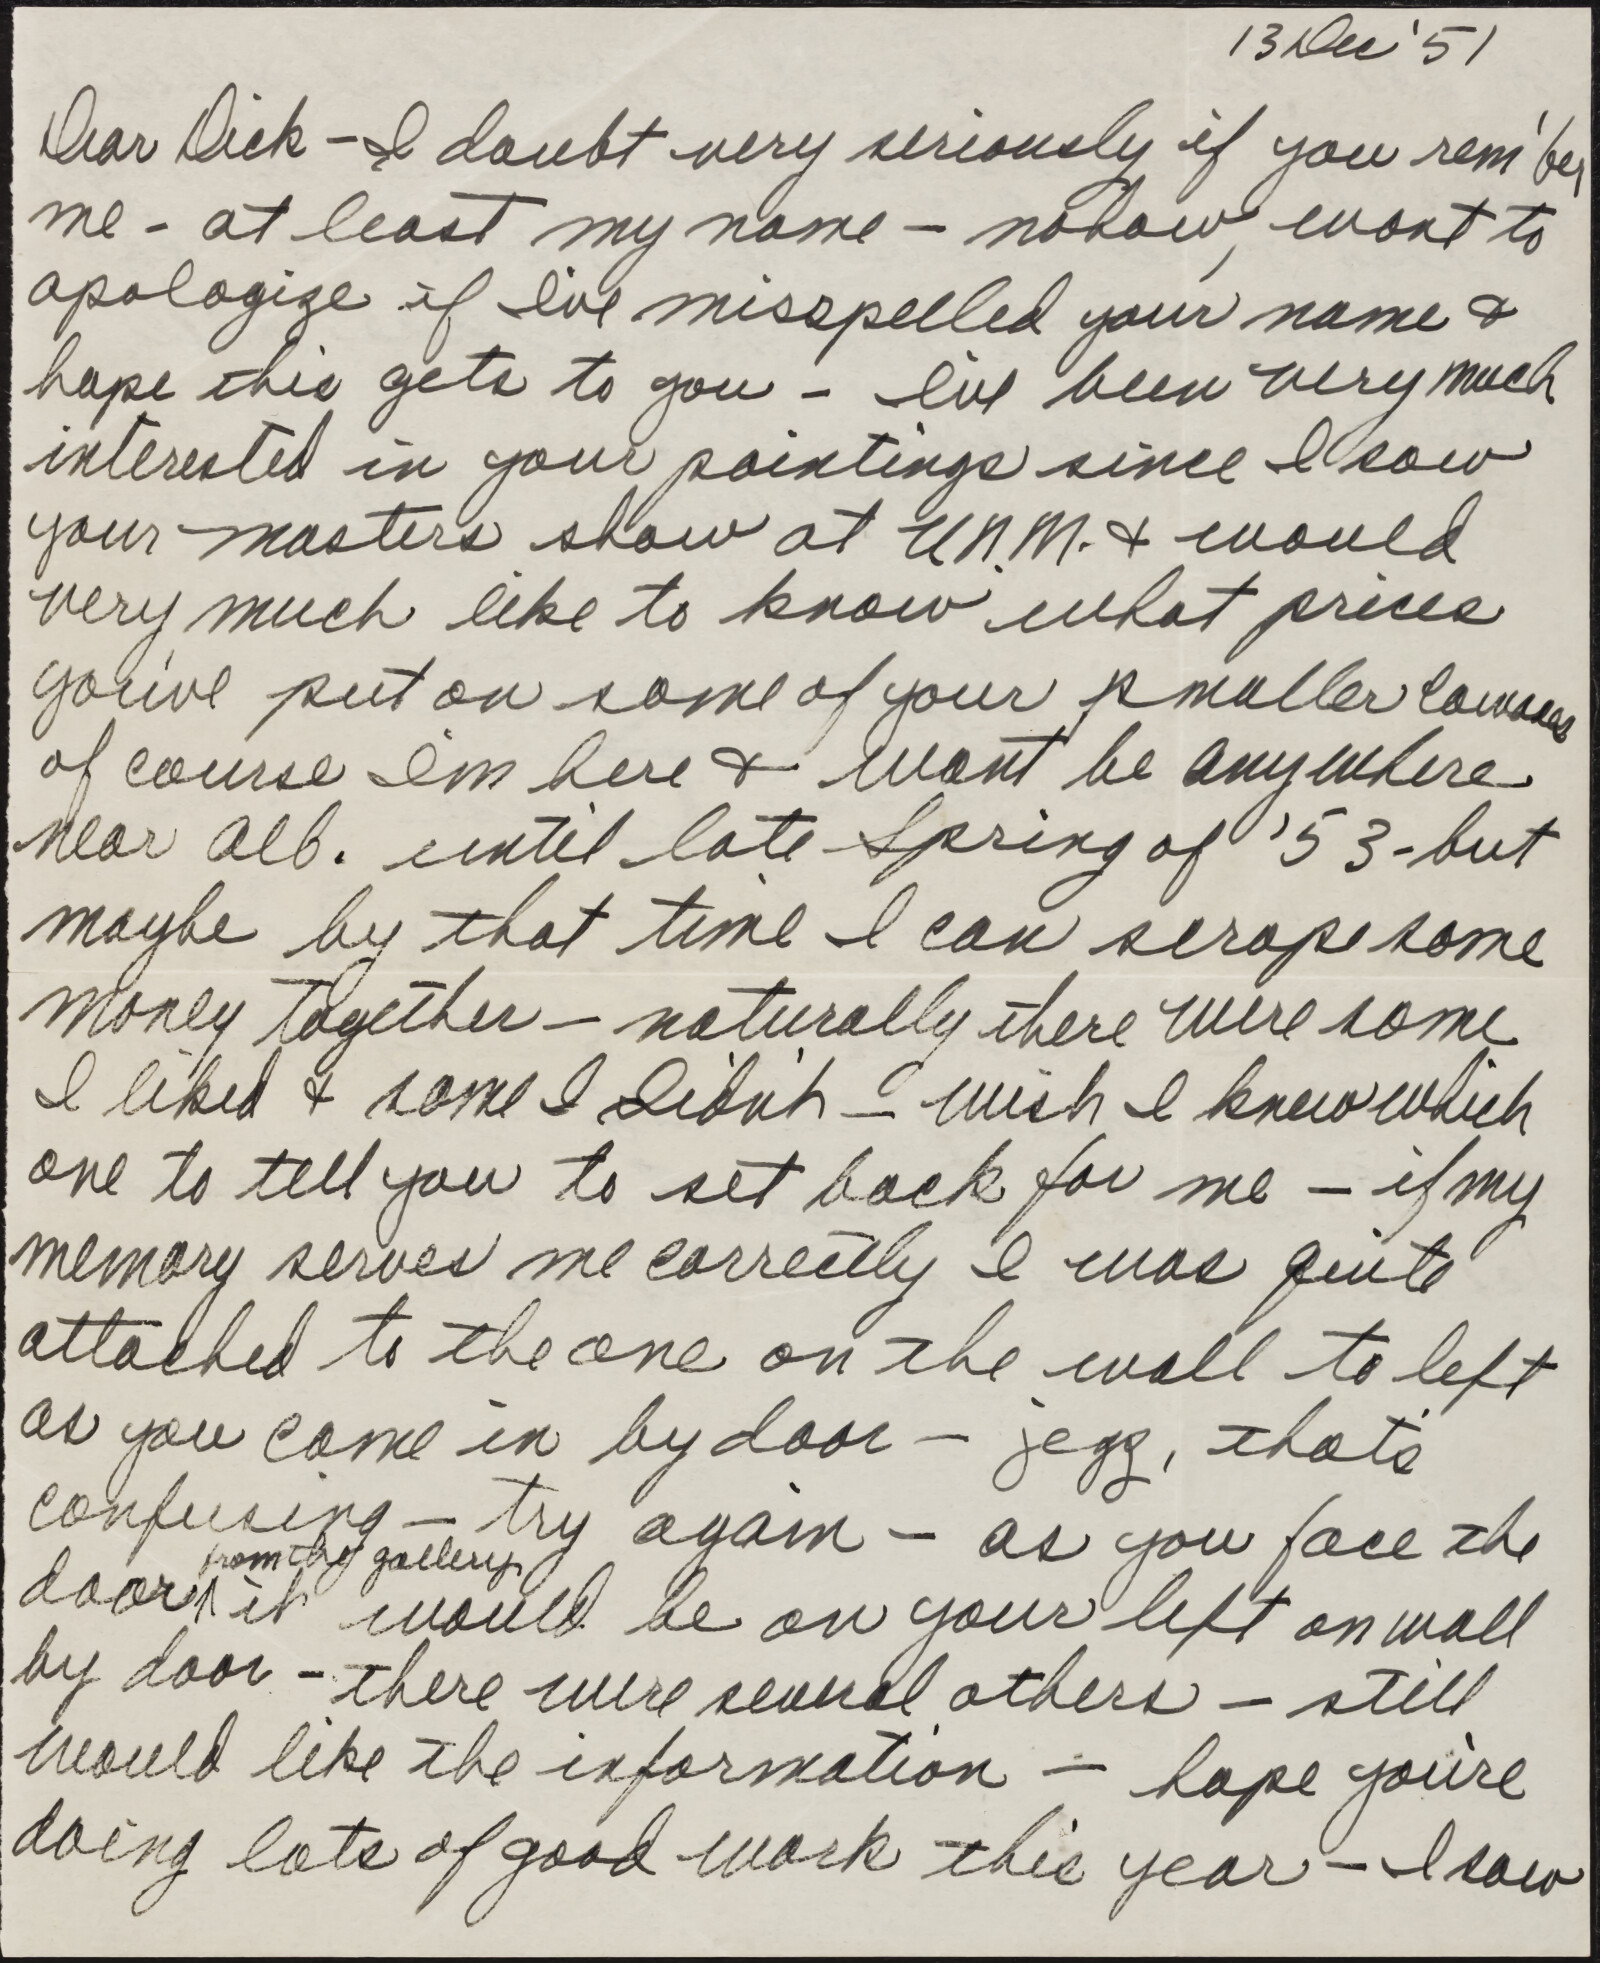 13 Dec '51
Dear Dick - I doubt very seriously if you rem'ber
me - at least my name - nohow, want to
apologize if I've misspelled your name &
hope this gets to you - I've been very much
interested in your paintings since I saw
your masters show at U.N.M. & would
very much like to know what prices
you've put on some of your smaller canvases
of course I'm here & won't be anywhere
near Alb. until late Spring of '53 - but
maybe by that time I can scrape some
money together - naturally there were some
I liked & some I didn't - wish I knew which
one to tell you to set back for me - if my
memory serves me correctly I was quite
attached to the one on the wall to left
as you come in by door - jegz, that's
confusing - try again - as you face the
from the gallery
door it would be on your left on wall
by door - there were several others - still
would like the information - hope you're
doing lots of good work this year - I saw